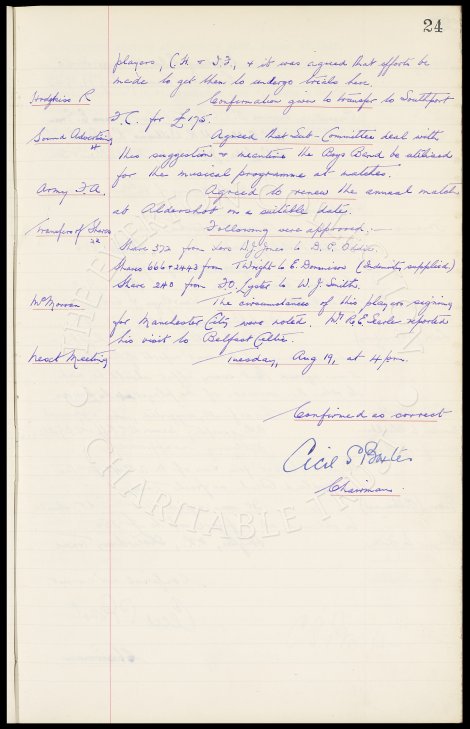 24
players, C.H. & I.F., & it was agreed that efforts be
made to get them to undergo trials here.
Hodgkiss R Confirmation given to transfer to Southport
F.C. for £175.
Sound Advertising Agreed that Sub-Committee deal with
this suggestion & meantime the Boys Band be utilised
for the musical programme at matches.
Army F.A. Agreed to renew the annual match
at Aldershot on a suitable date.
Transfers of Shares Following were approved:-
Share 372 from W. J. Jones to D. P.
Shares 666 & 2443 from T Wright to E. (Indemnity supplied)
Share 240 from F.O. Lyster to W. J. Smith.
The circumstances of this players signing
for Manchester City were noted. Mr R.E. Searle reported
his visit to Belfast Celtic.
Next Meeting Tuesday, Aug 19, at 4 pm.
Confirmed as correct
Cecil S Baxter
Chairman.
THE EVERTON
CHARITABLE TRUST